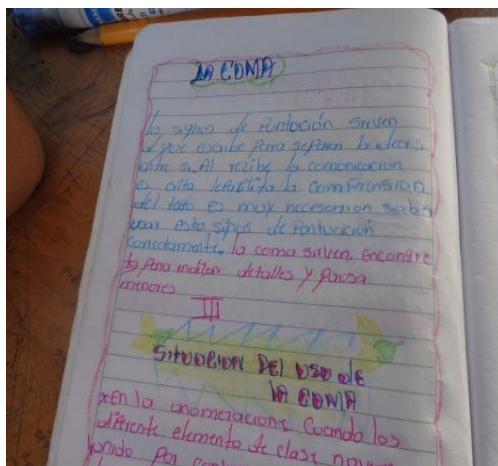 LA COMA
lo signos de Puntución sirven
que escribe Para separar la ideas
entre si. Al recibe la comunicacion
la comprension
del es muy necesarion saber
usar esto signos de Pontucición
correctamente. la coma sirven
Para indicar detalles y pausa
menores
III
SITUOCION DEL USO DE
LA COMA
En la enomeracions Cuando los
diferente elemento de clase
unido Por